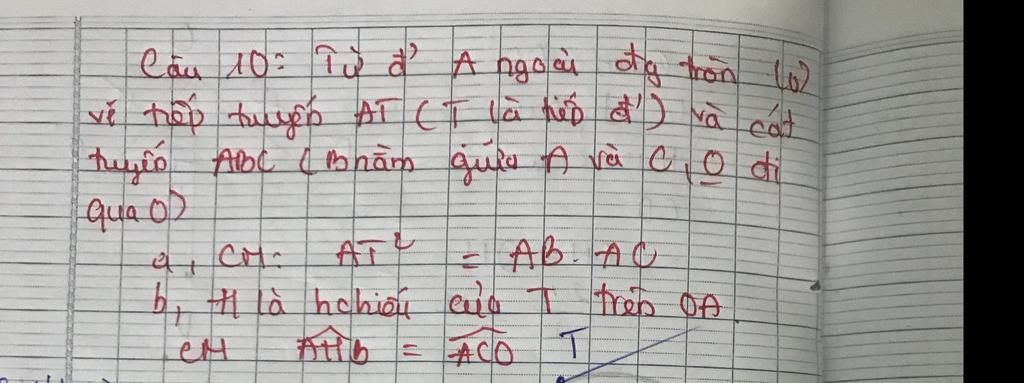 Câu 10: Từ đ' A ngoài đtg tròn (O)
vẽ tiếp tuyến AT (T là tiếp đ') và cát
tuyến ABC (B nằm giữa A và C, O đi
qua O)
a, CM: AT² = AB. AC
b, H là hchiếu của T trên OA
CM AHB = ACO T